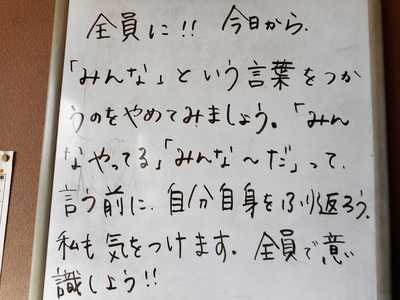 全員に!! 今日から.
「みんな」という言葉をつか
うのをやめてみましょう。「みん
なやってる」「みんな～だ」って.
言う前に. 自分自身をふり返ろう.
私も気をつけます. 全員で意
識しよう!!